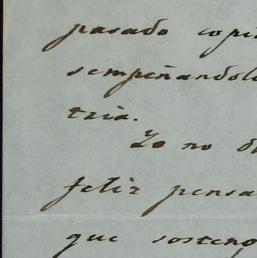 pasado copi
sempeñandolo
tria.
Yo no d
feliz pensa
que sosteng